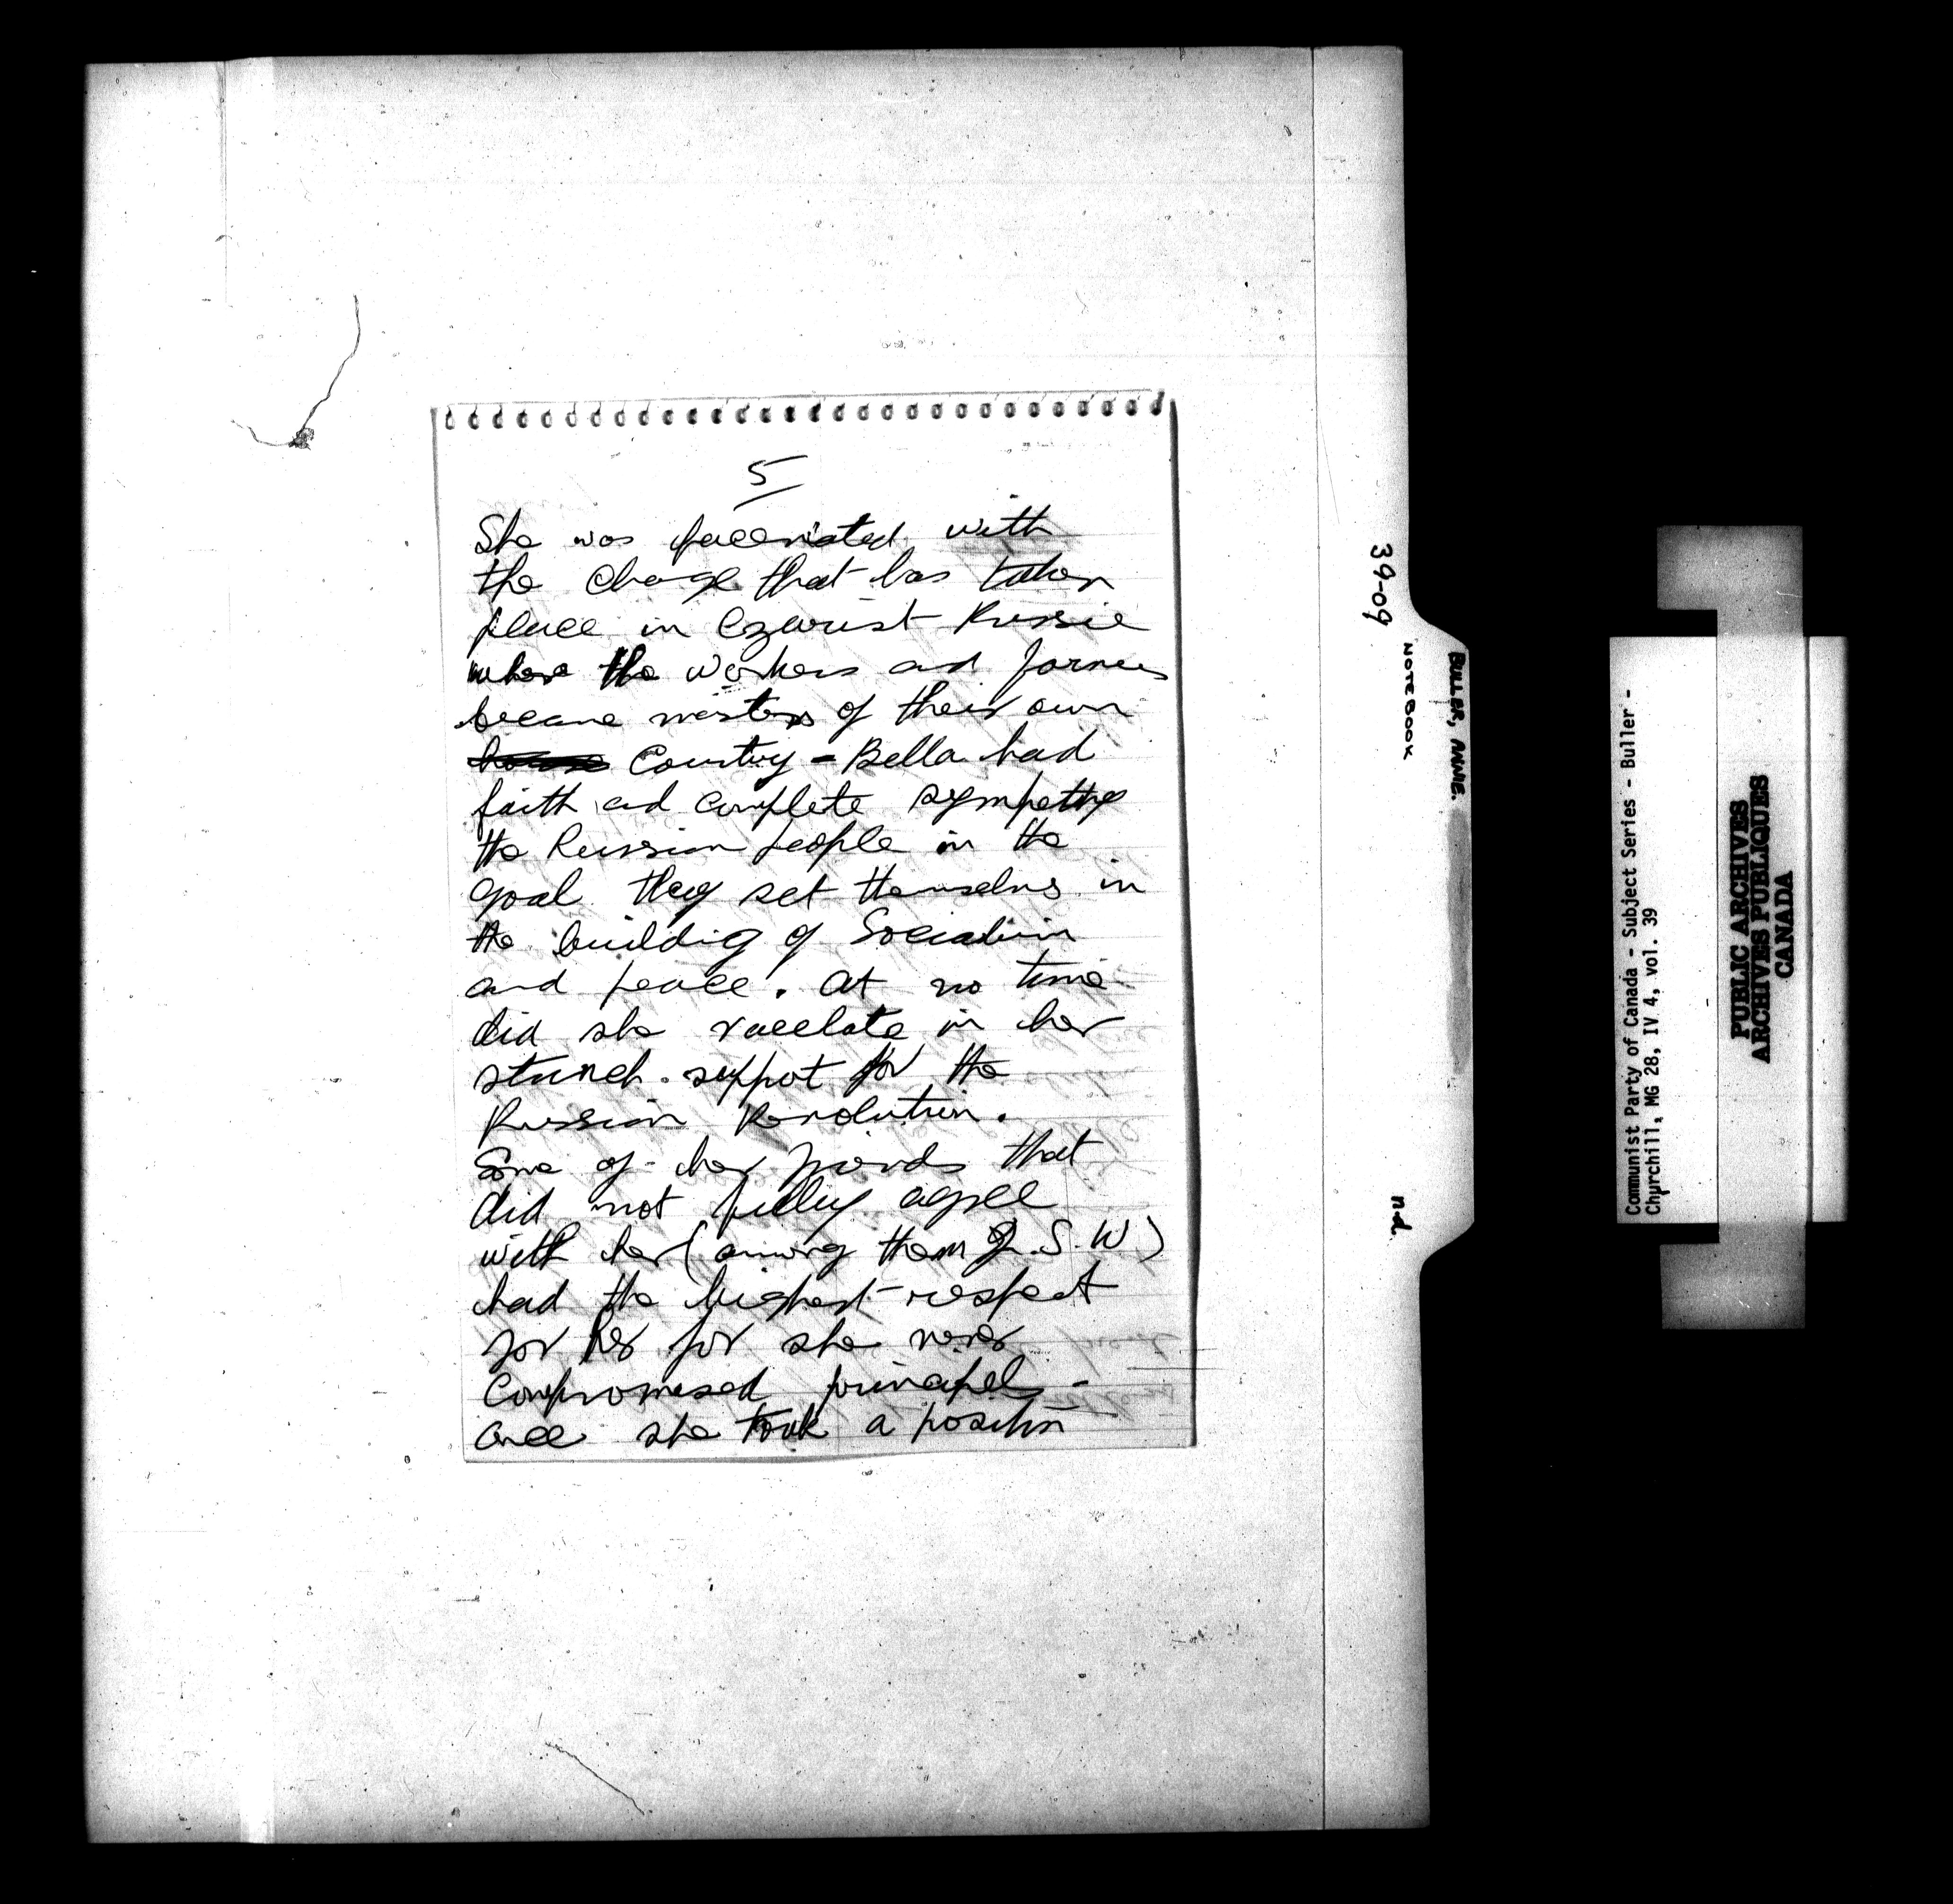 5
She was faccenated with
the change that has taken
place in Czarist Russia
where the workers and farmers
became masters of their own
Country - Bella had
faith and complete sympathy
the Russian people in the
goal they set themselves in
the building of Socialism
and peace. At no time
did she vacelate in her
stunch support for the
Russian Revolution.
Some of her friends that
did not fully agree
with her (among them J.S.W)
had the highest respect
for her for she never
compromesed principels -
Once she took a position
39-09
NOTEBOOK
BULLER, ANNIE.
n.d.
Communist Party of Canada - Subject Series - Buller -
Churchill, MG 28, IV 4, vol. 39
PUBLIC ARCHIVES
ARCHIVES PUBLIQUES
CANADA